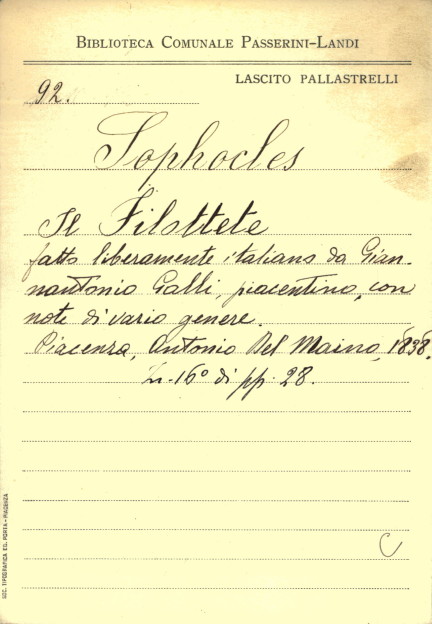 BIBLIOTECA COMUNALE PASSERINI-LANDI
LASCITO PALLASTRELLI
92.
Sophocles
Il Filottete
fatto liberamente italiano da Gian-
nantonio Galli, piacentino, con
note di vario genere.
Piacenza, Antonio Del Maino, 1838.
In-16° di pp. 28.
C
SOC. TIPOGRAFICA ED. PORTA-PIACENZA